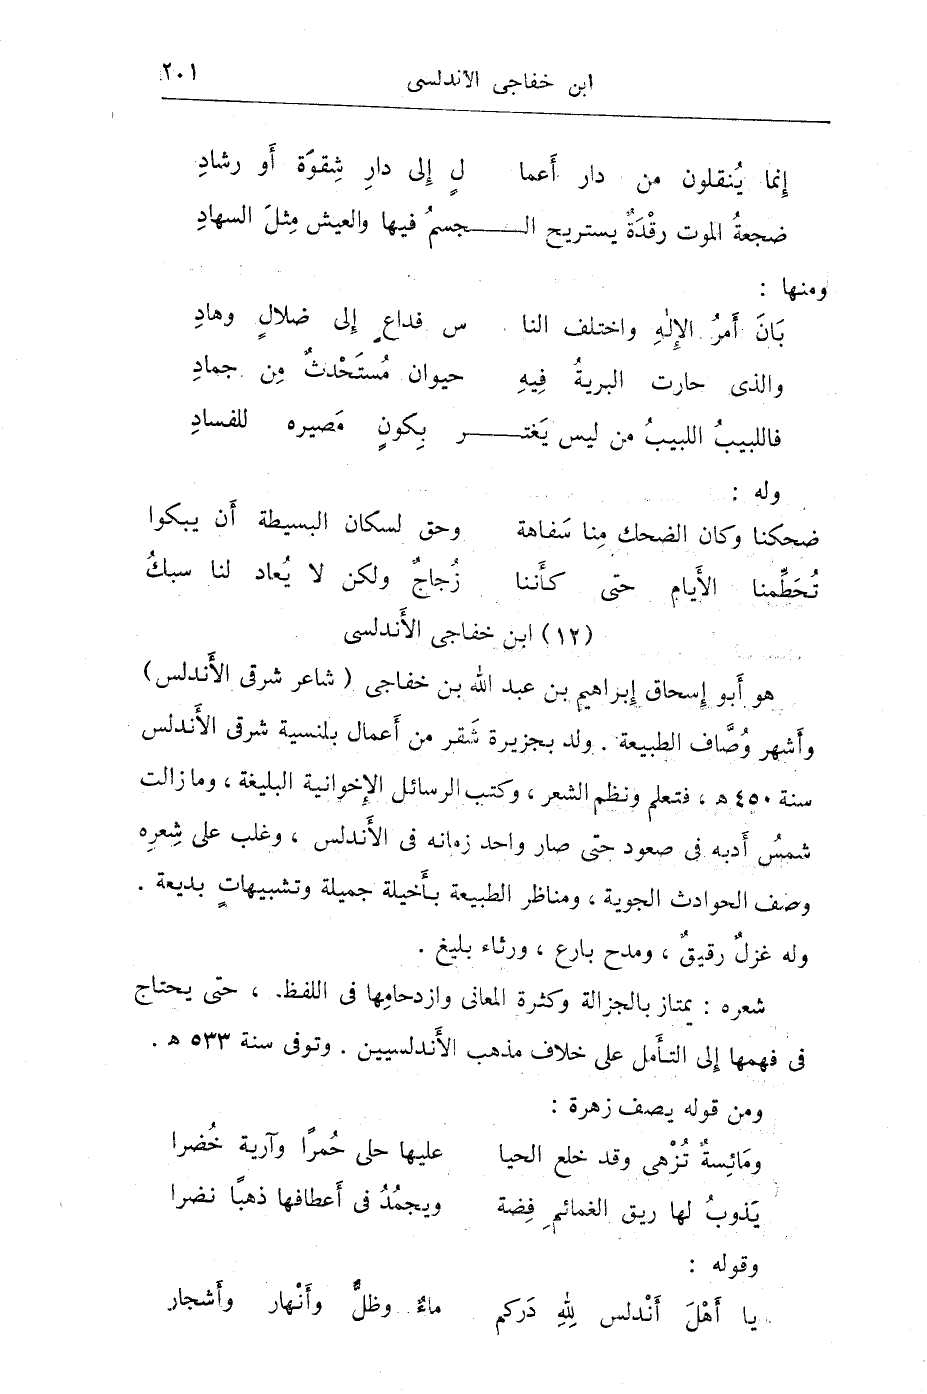 ابن خفاجى الأندلسى ٢٠١
إنما يُنقلون من دار أَعما لٍ إلى دارِ شِقوَة أَو رشادِ
ضجعةُ الموت رقْدَةٌ يستريح الـــجسمُ فيها والعيش مِثلَ السهادِ
ومنها :
بَانَ أَمرُ الإِلٰهِ واختلف النا س فداعٍ إِلى ضلالٍ وهادِ
والذى حارت البريةُ فِيهِ حيوان مُستَحْدثٌ مِن جمادِ
فاللبيبُ اللبيبُ من ليس يَغتــــر بِكونٍ مَصيره للفسادِ
وله :
ضحكنا وكان الضحك مِنا سَفاهة وحق لسكان البسيطة أَن يبكوا
تُحَطِّمنا الأَيام حتى كأَننا زُجاجٌ ولكن لا يُعاد لنا سبكُ
(١٢) ابن خفاجى الأَندلسى
هو أَبو إِسحاق إِبراهيم بن عبد الله بن خفاجى ( شاعر شرقى الأَندلس )
وأَشهر وُصَّاف الطبيعة . ولد بجزيرة شَقر من أَعمال بلنسية شرقى الأَندلس
سنة ٤٥٠ هـ ، فتعلم ونظم الشعر ، وكتب الرسائل الإِخوانية البليغة ، وما زالت
شمسُ أدبه فى صعود حتى صار واحد زمانه فى الأَندلس ، وغلب على شِعرِه
وصف الحوادث الجوية ، ومناظر الطبيعة بأَخيلة جميلة وتشبيهاتٍ بديعة .
وله غزلٌ رقيقٌ ، ومدح بارع ، ورثاء بليغ .
شعره : يمتاز بالجزالة وكثرة المعانى وازدحامِها فى اللفظ ، حتى يحتاج
فى فهمها إلى التأَمل على خلاف مذهب الأَندلسيين . وتوفى سنة ٥٣٣ هـ .
ومن قوله يصف زهرة :
ومَائِسةٌ تُزْهى وقد خلع الحيا عليها حلى حُمرًا وآرية خُضرا
يَذوبُ لها ريق الغمائمِ فِضة ويجمُدُ فى أَعطافها ذهبًا نضرا
وقوله :
يا أَهْلَ أَنْدلس لِلهِ دَركم ماءٌ وظلٌّ وأَنْهار وأَشجار